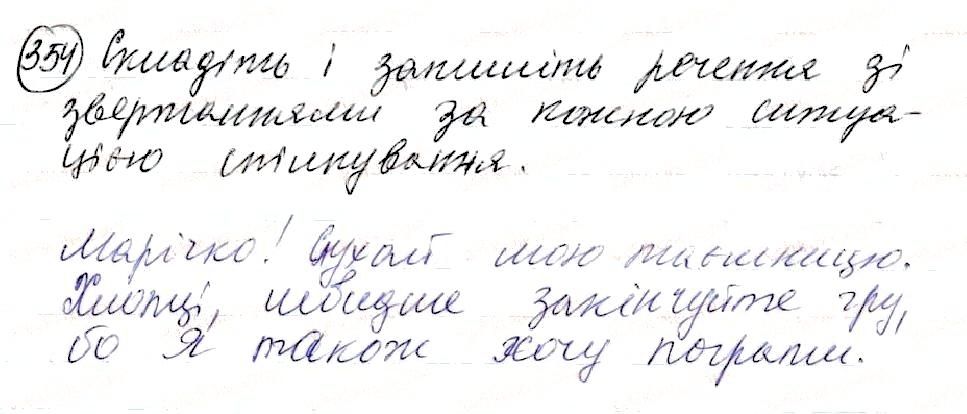 354 Складіть і запишіть речення зі
звертаннями за кожною ситуа-
цією спілкування.
Марічко! Слухай мою таємницю.
Хлопці, швидше закінчуйте гру,
бо я також хочу пограти.